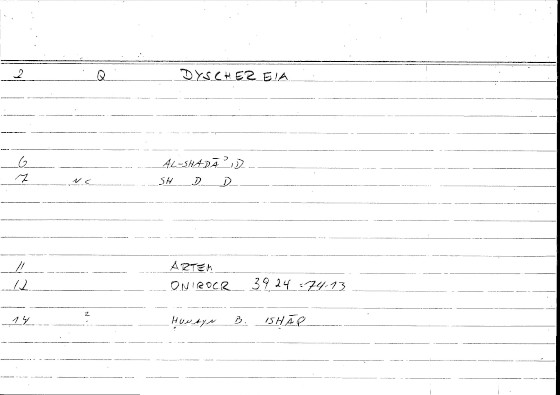 2 Q DYSCHEREIA
6 AL-SHADĀʾID
7 N.C SH D D
11 ARTEM
12 ONIROCR 39.24 = 74.13
14 2 Ḥunayn B. ISḤĀQ